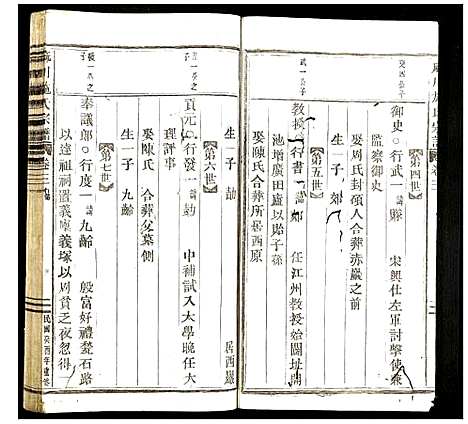 第四世
御史○行武一 諱
宋興仕左軍討擊使兼
監察御史
娶周氏封碩人合葬赤巖之前
生一子 郊
第五世
武一公子
教授○行書一 諱郊
任江州教授始闢址開
池增廣田廬以貽子孫
娶陳氏合葬所居西原
生一子 勛
居西巖
第六世
書一公之子
貢元○行發一 諱勛
中補試入太學晚任大
理評事
娶陳氏 合葬父墓側
生一子 九齡
第七世
發一公之子
奉議郎○行度一 諱九齡
殷富好禮甃石路
以達祖祠置義廩義塚以周貧乏夜忽得
民國癸酉年重修